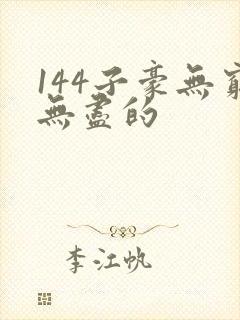 144子豪無窮
無盡的
李江帆